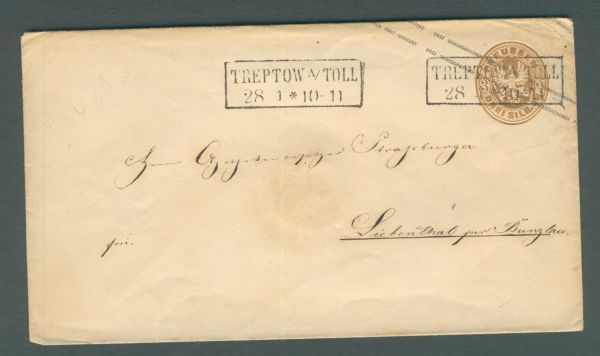 DREI SILBERGROSCHEN
PREUSSEN
DREI SILB. GR.
TREPTOW A/ TOLL
28 1 * 10-11
TREPTOW A/ TOLL
28 1 * 10-11
Herrn Apothekenbesitzer Straßburger.
frei.
Liebenthal per Bunzlau.